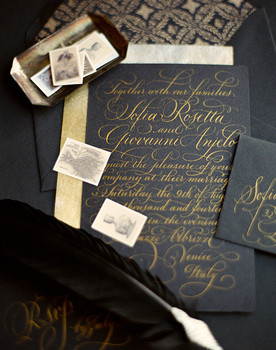 Together with our families,
Sofia Rosetta
and
Giovanni Angelo
request the pleasure of your
company at their marriage
Saturday the 9th of Aug
thousand and fourteen
in the evening
Palazzo Albrizzi
Venice
Italy
Sofia